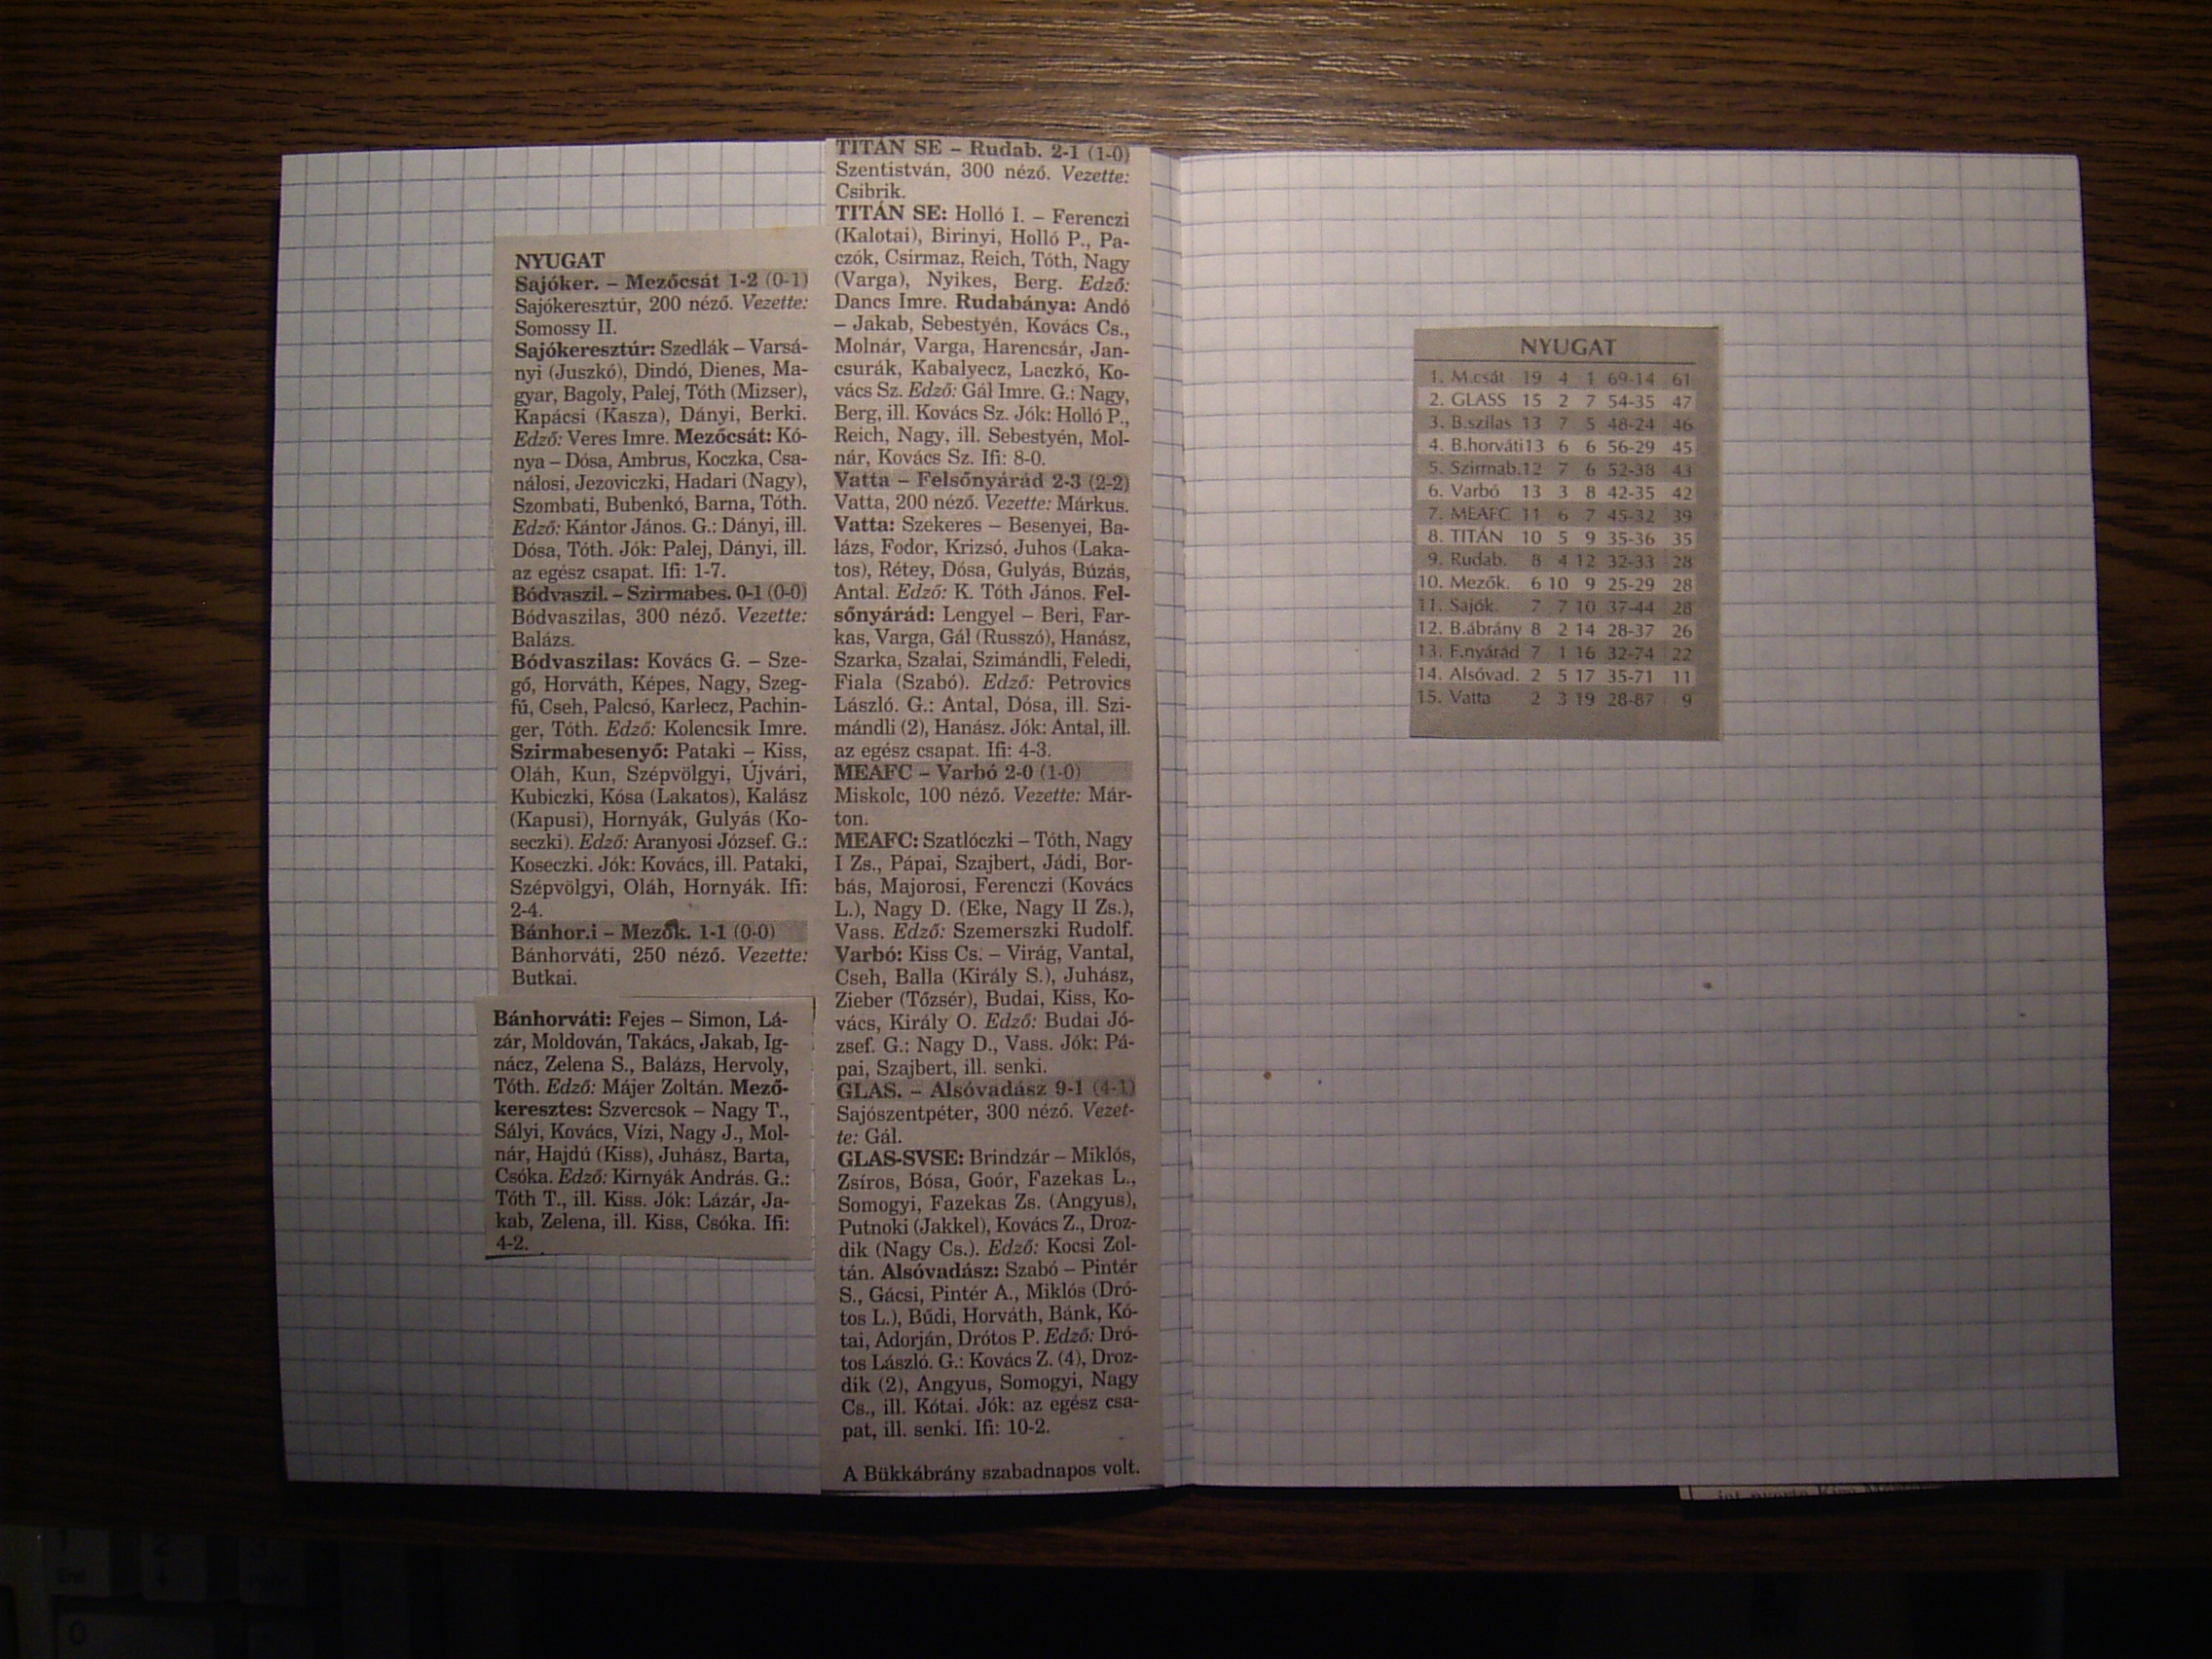 NYUGAT
Sajóker. – Mezőcsát 1-2 (0-1)
Sajókeresztúr, 200 néző. Vezette:
Somossy II.
Sajókeresztúr: Szedlák – Varsá-
nyi (Juszkó), Dindó, Dienes, Ma-
gyar, Bagoly, Palej, Tóth (Mizser),
Kapácsi (Kasza), Dányi, Berki.
Edző: Veres Imre. Mezőcsát: Kó-
nya – Dósa, Ambrus, Koczka, Csa-
nálosi, Jezoviczki, Hadari (Nagy),
Szombati, Bubenkó, Barna, Tóth.
Edző: Kántor János. G.: Dányi, ill.
Dósa, Tóth. Jók: Palej, Dányi, ill.
az egész csapat. Ifi: 1-7.
Bódvaszil. – Szirmabes. 0-1 (0-0)
Bódvaszilas, 300 néző. Vezette:
Balázs.
Bódvaszilas: Kovács G. – Sze-
gő, Horváth, Képes, Nagy, Szeg-
fű, Cseh, Palcsó, Karlecz, Pachin-
ger, Tóth. Edző: Kolencsik Imre.
Szirmabesenyő: Pataki – Kiss,
Oláh, Kun, Szépvölgyi, Újvári,
Kubiczki, Kósa (Lakatos), Kalász
(Kapusi), Hornyák, Gulyás (Ko-
seczki). Edző: Aranyosi József. G.:
Koseczki. Jók: Kovács, ill. Pataki,
Szépvölgyi, Oláh, Hornyák. Ifi:
2-4.
Bánhor.i – Mezők. 1-1 (0-0)
Bánhorváti, 250 néző. Vezette:
Butkai.
Bánhorváti: Fejes – Simon, Lá-
zár, Moldován, Takács, Jakab, Ig-
nácz, Zelena S., Balázs, Hervoly,
Tóth. Edző: Májer Zoltán. Mező-
keresztes: Szvercsok – Nagy T.,
Sályi, Kovács, Vízi, Nagy J., Mol-
nár, Hajdú (Kiss), Juhász, Barta,
Csóka. Edző: Kirnyák András. G.:
Tóth T., ill. Kiss. Jók: Lázár, Ja-
kab, Zelena, ill. Kiss, Csóka. Ifi:
4-2.
TITÁN SE – Rudab. 2-1 (1-0)
Szentistván, 300 néző. Vezette:
Csibrik.
TITÁN SE: Holló I. – Ferenczi
(Kalotai), Birinyi, Holló P., Pa-
czók, Csirmaz, Reich, Tóth, Nagy
(Varga), Nyikes, Berg. Edző:
Dancs Imre. Rudabánya: Andó
– Jakab, Sebestyén, Kovács Cs.,
Molnár, Varga, Harencsár, Jan-
csurák, Kabalyecz, Laczkó, Ko-
vács Sz. Edző: Gál Imre. G.: Nagy,
Berg, ill. Kovács Sz. Jók: Holló P.,
Reich, Nagy, ill. Sebestyén, Mol-
nár, Kovács Sz. Ifi: 8-0.
Vatta – Felsőnyárád 2-3 (2-2)
Vatta, 200 néző. Vezette: Márkus.
Vatta: Szekeres – Besenyei, Ba-
lázs, Fodor, Krizsó, Juhos (Laka-
tos), Rétey, Dósa, Gulyás, Búzás,
Antal. Edző: K. Tóth János. Fel-
sőnyárád: Lengyel – Beri, Far-
kas, Varga, Gál (Russzó), Hanász,
Szarka, Szalai, Szimándli, Feledi,
Fiala (Szabó). Edző: Petrovics
László. G.: Antal, Dósa, ill. Szi-
mándli (2), Hanász. Jók: Antal, ill.
az egész csapat. Ifi: 4-3.
MEAFC – Varbó 2-0 (1-0)
Miskolc, 100 néző. Vezette: Már-
ton.
MEAFC: Szatlóczki – Tóth, Nagy
I Zs., Pápai, Szajbert, Jádi, Bor-
bás, Majorosi, Ferenczi (Kovács
L.), Nagy D. (Eke, Nagy II Zs.),
Vass. Edző: Szemerszki Rudolf.
Varbó: Kiss Cs. – Virág, Vantal,
Cseh, Balla (Király S.), Juhász,
Zieber (Tőzsér), Budai, Kiss, Ko-
vács, Király O. Edző: Budai Jó-
zsef. G.: Nagy D., Vass. Jók: Pá-
pai, Szajbert, ill. senki.
GLAS. – Alsóvadász 9-1 (4-1)
Sajószentpéter, 300 néző. Vezet-
te: Gál.
GLAS-SVSE: Brindzár – Miklós,
Zsíros, Bósa, Goór, Fazekas L.,
Somogyi, Fazekas Zs. (Angyus),
Putnoki (Jakkel), Kovács Z., Droz-
dik (Nagy Cs.). Edző: Kocsi Zol-
tán. Alsóvadász: Szabó – Pintér
S., Gácsi, Pintér A., Miklós (Dró-
tos L.), Bűdi, Horváth, Bánk, Kó-
tai, Adorján, Drótos P. Edző: Dró-
tos László. G.: Kovács Z. (4), Droz-
dik (2), Angyus, Somogyi, Nagy
Cs., ill. Kótai. Jók: az egész csa-
pat, ill. senki. Ifi: 10-2.
A Bükkábrány szabadnapos volt.
NYUGAT
1. M.csát 19 4 1 69-14 61
2. GLASS 15 2 7 54-35 47
3. B.szilas 13 7 5 48-24 46
4. B.horváti 13 6 6 56-29 45
5. Szirmab. 12 7 6 52-38 43
6. Varbó 13 3 8 42-35 42
7. MEAFC 11 6 7 45-32 39
8. TITÁN 10 5 9 35-36 35
9. Rudab. 8 4 12 32-33 28
10. Mezők. 6 10 9 25-29 28
11. Sajók. 7 7 10 37-44 28
12. B.ábrány 8 2 14 28-37 26
13. F.nyárád 7 1 16 32-74 22
14. Alsóvad. 2 5 17 35-71 11
15. Vatta 2 3 19 28-87 9